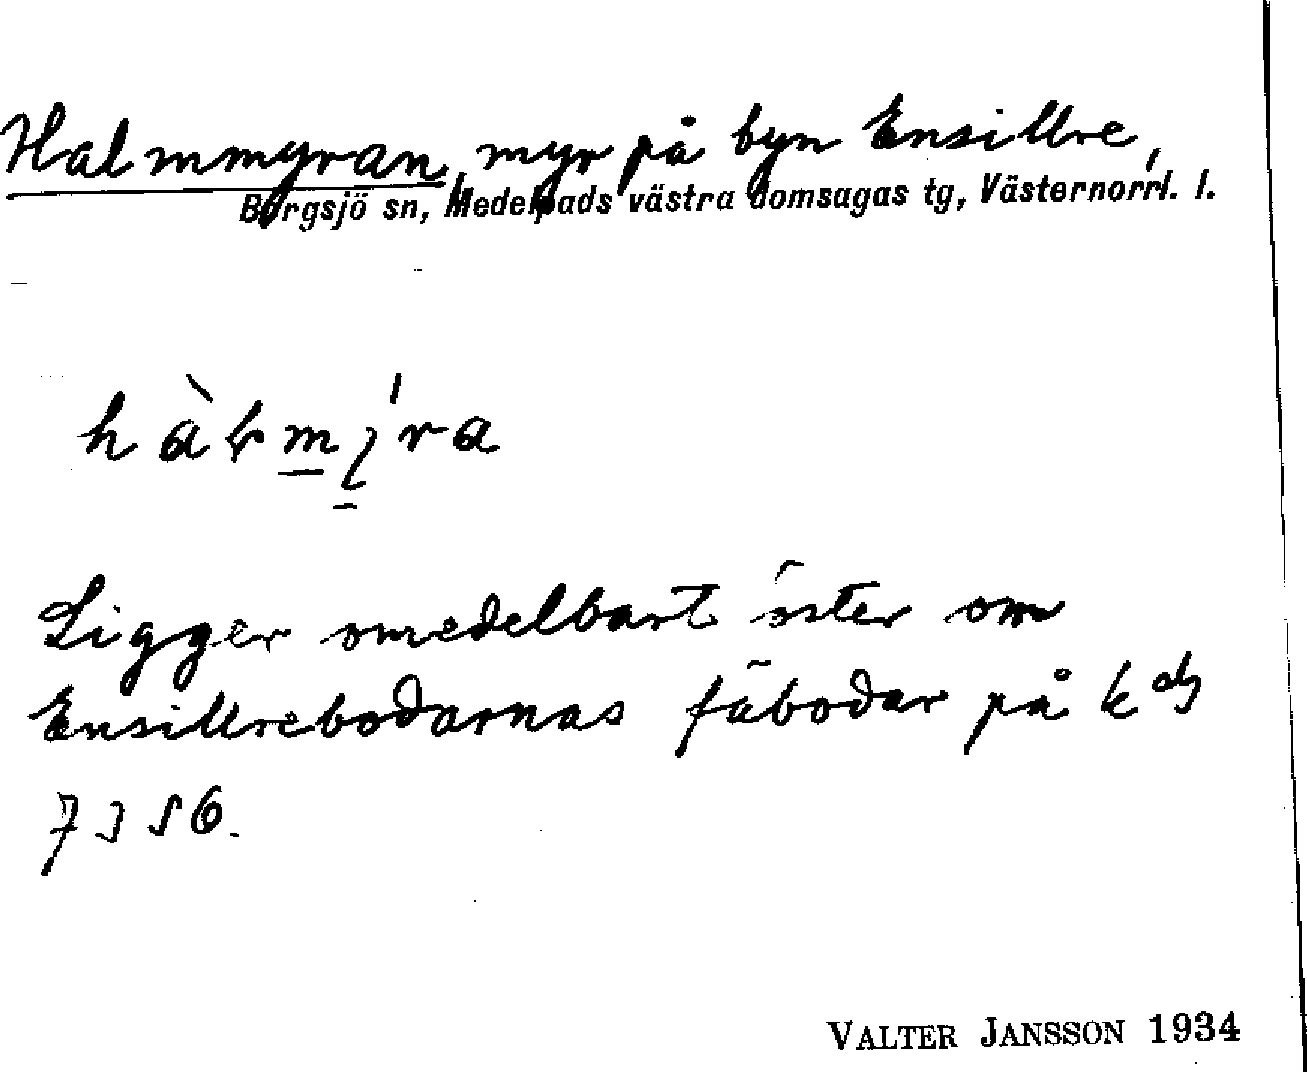 Halmmyran, myr på byn Ensillre,
Borgsjö sn, Medelpads västra domsagas tg, Västernorrl. l.
Ligger omedelbart öster om
Ensillrebodarnas fäbodar på
VALTER JANSSON 1934